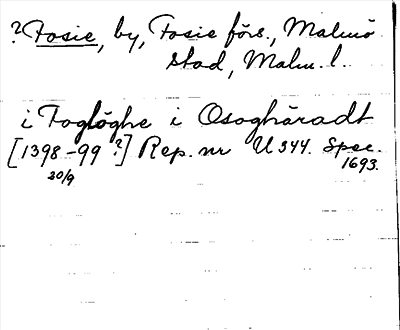 ? Fosie, by, Fosie förs., Malmö
stad, Malm. l.
i Foglöghe i Osoghäradt
[1398-99 ?] Rep. nr U 344. Spec.
20/9 1693.